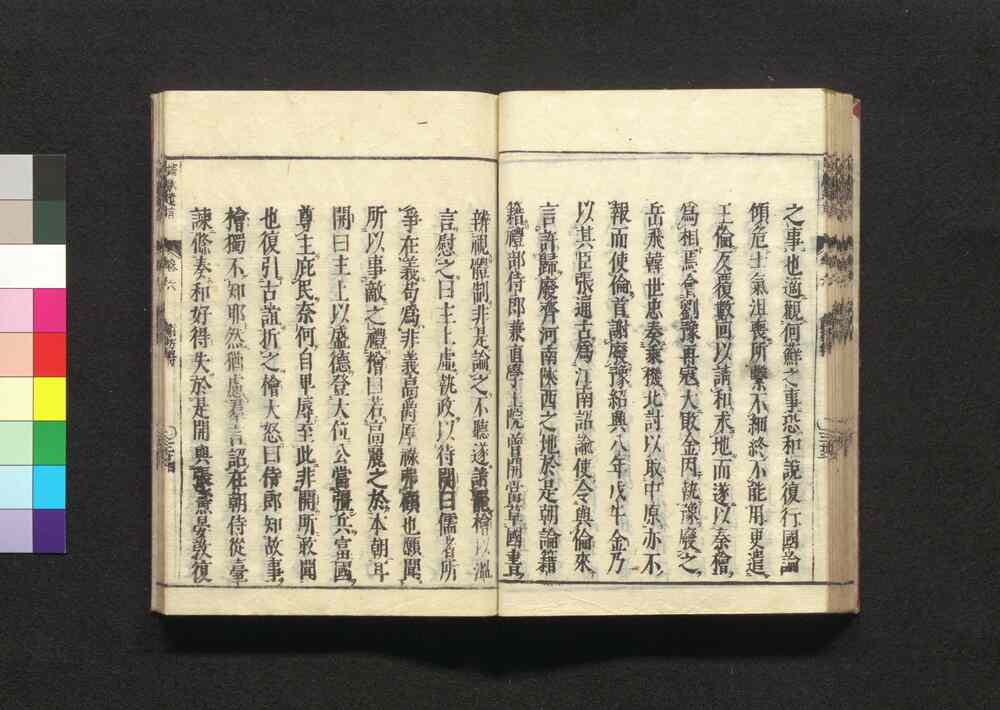 之事也適觀何鮮之事恐和說復行國論
傾危士氣沮喪所繫不細終不能用更遣
王倫反覆數回以請和求地而遂以秦檜
爲相焉會劉豫再寇大敗金因執豫廢之
岳飛韓世忠奏乘機北討以取中原亦不
報而使倫首謝廢豫紹興八年戊午金乃
以其臣張通古爲江南詔諭使令與倫來
言許歸廢齊河南陝西之地於是朝論籍
籍禮部侍郎兼直學士院曾開當草國書
辨視體制非是論之不聽遂請罷檜以溫
言慰之曰主上虛執政以待開曰儒者所
爭在義苟爲非義高爵厚祿弗顧也願聞
所以事敵之禮檜曰若高麗之於本朝耳
開曰主上以盛德登大位公當彊兵富國
尊主庇民奈何自卑辱至此非開所敢聞
也復引古誼折之檜大怒曰侍郎知故事
檜獨不知耶然猶慮羣言詔在朝侍從臺
諫條奏和好得失於是開與張燾晏敦復
卷六